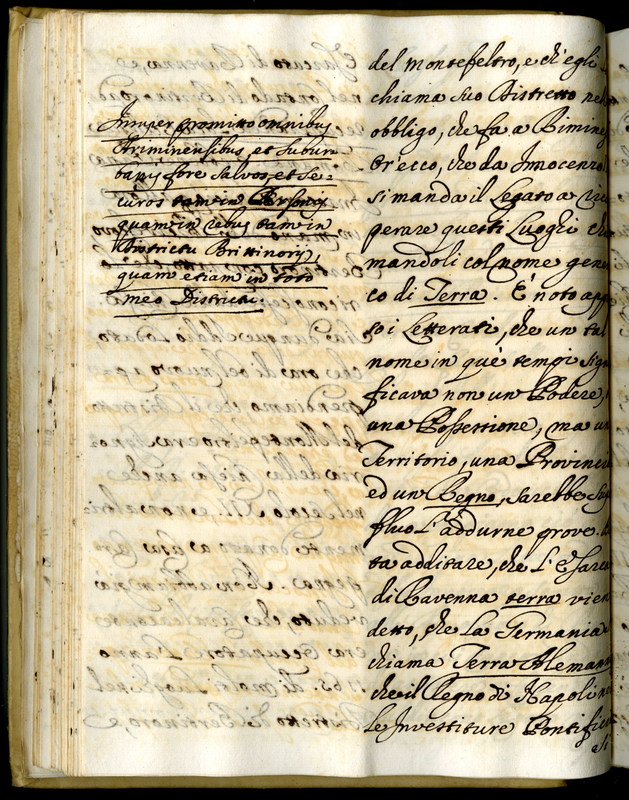 Insuper promitto omnibus
Ariminensibus, et subur
banis fore salvos, et se=
curos tam in Personis
quam in rebus tam in
Districtu Brittinorij,
quam etiam in toto
meo Districtu.
del Montefeltro, e ch'egli
chiama suo Distretto nel
obbligo, che fa a Rimine
Or'ecco, che da Innocenzo
si manda il Legato a ricu
perare questi Luoghi chia
mandoli col nome gene
co di Terra. È noto appr
so i Letterati, che un tal
nome in què tempi sign
ficava non un Podere,
una Possessione, ma un
Territorio, una Provincia
ed un Regno, sarebbe sup
fluo l'addurne prove.
ta additare, che l'Esarc
di Ravenna terra vien
detto, che La Germania
chiama Terra Aleman
che il Regno di Napoli ne
le Investiture Pontific